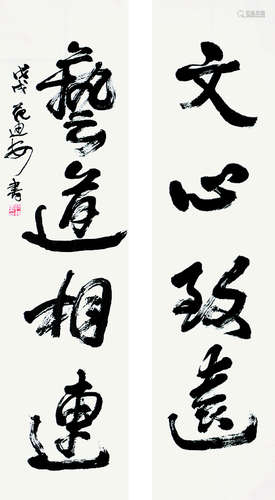 文心致遠
藝道相連
戊戌范迪安書